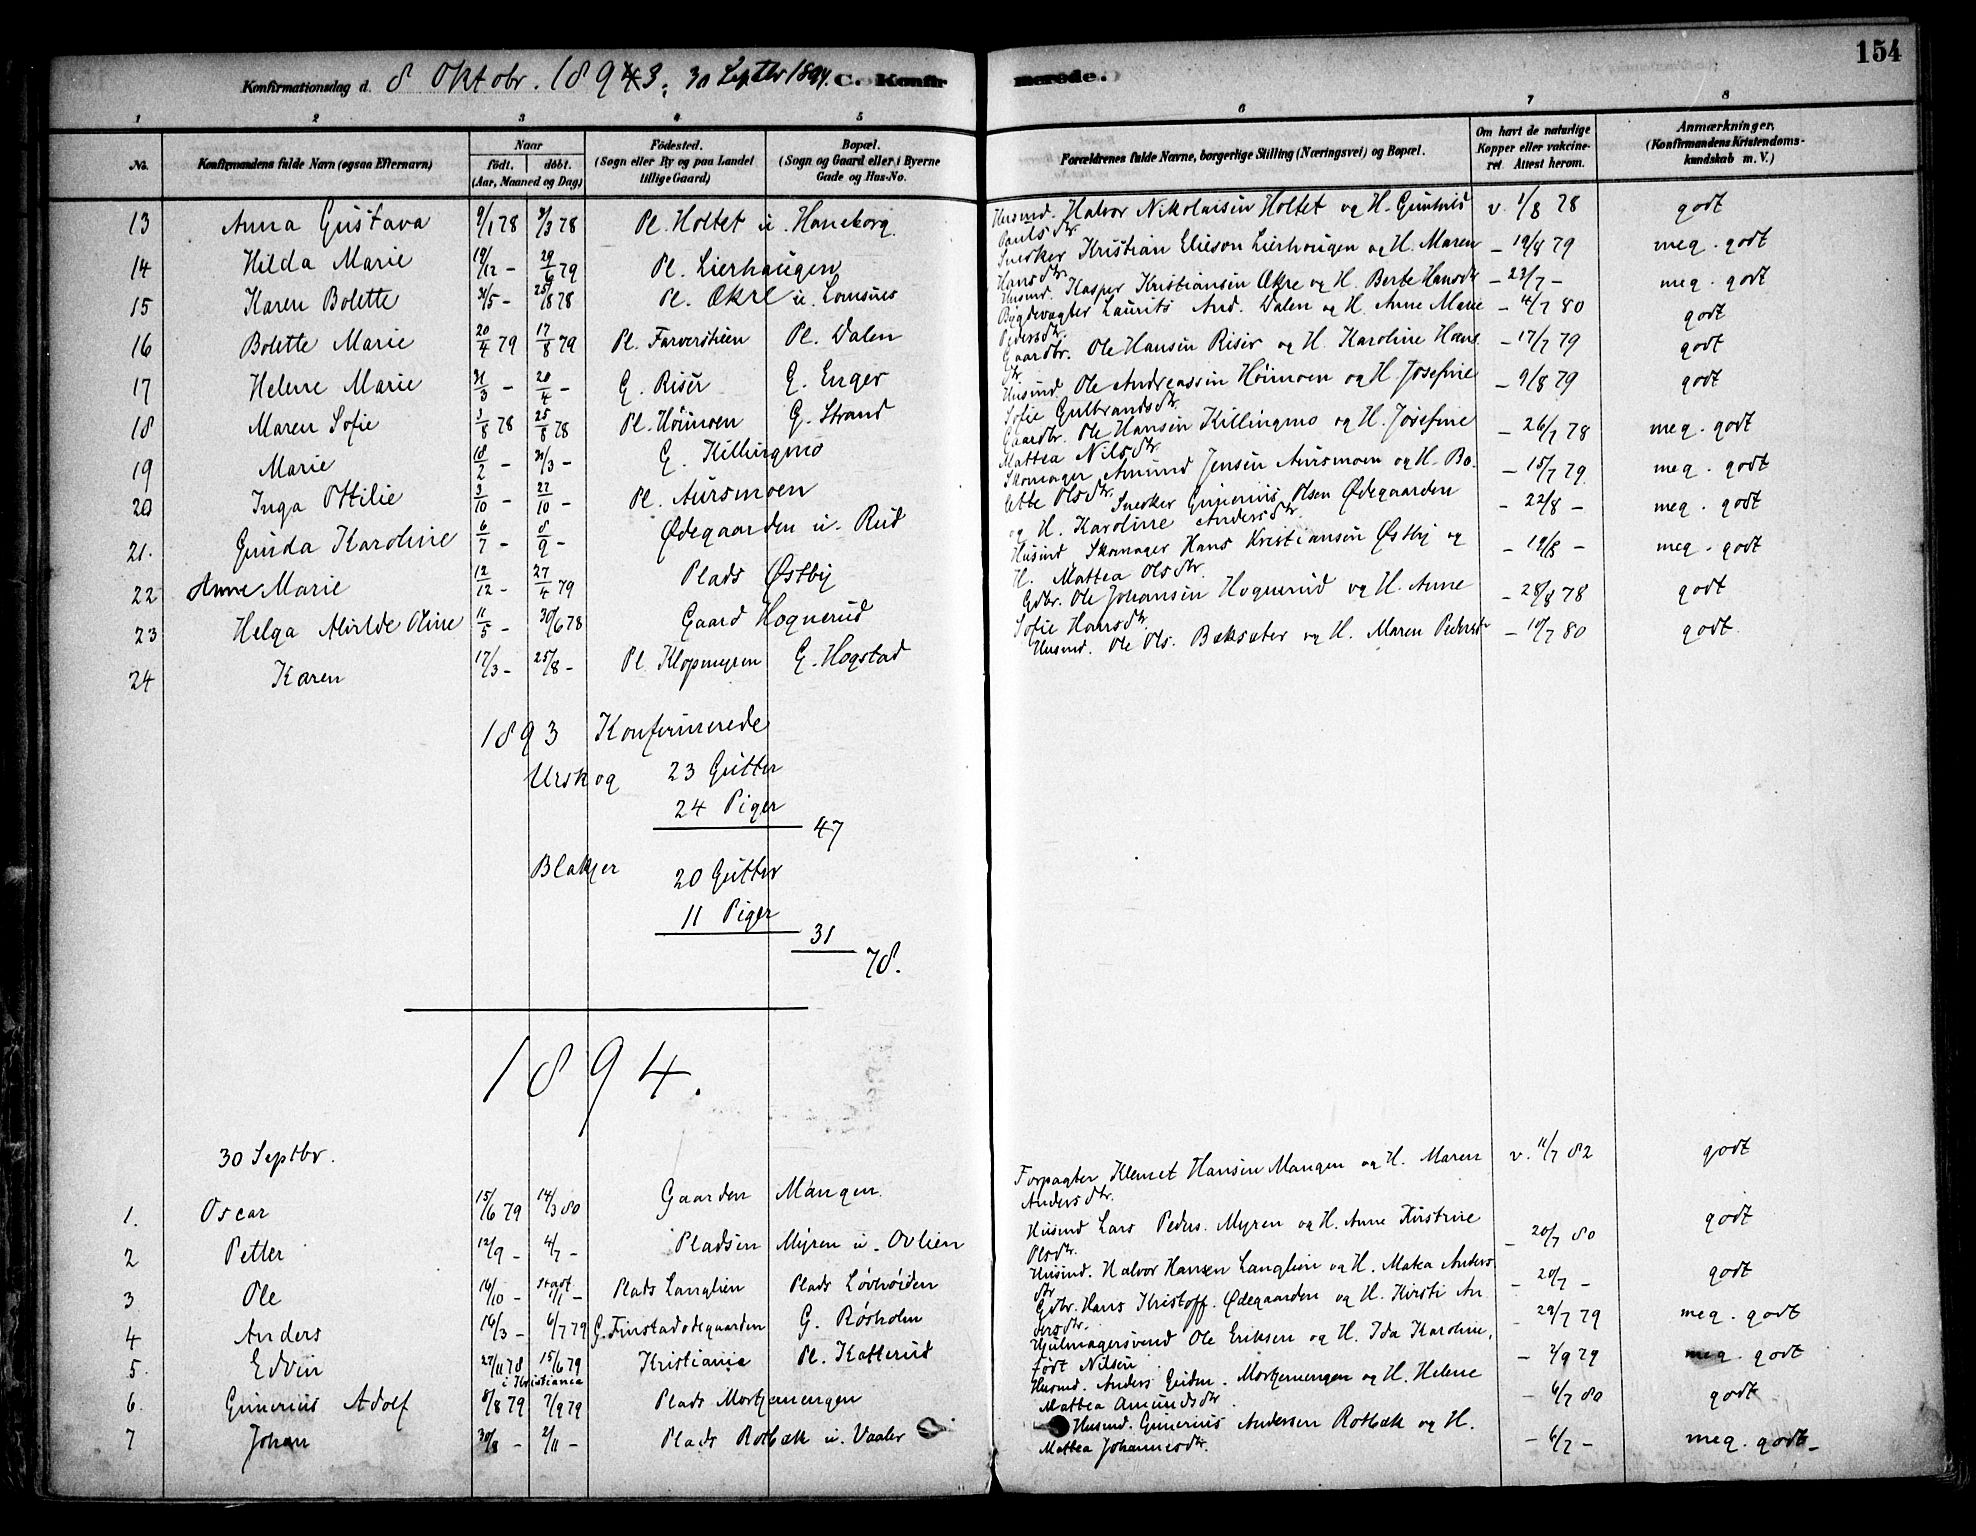 154
Konfirmationsdag d. 8 Oktobr. 1893; 30 Septbr 1894. C. Konfirmerede.
1 2 3 4 5 6 7 8
No. Konfirmandens fulde Navn (ogsaa Efternavn) Naar født. døbt. (Aar, Maaned og Dag) Fødested. (Sogn eller By og paa Landet tillige Gaard) Bopæl. (Sogn og Gaard eller i Byerne Gade og Hus-No. Forældrenes fulde Navne, borgerlige Stilling (Næringsvei) og Bopæl. Om havt de naturlige Kopper eller vakcineret Attest herom. Anmærkninger. (Konfirmandens Kristendomskundskab m. V.)
13 Anna Gustava 9/1 78 3/3 78 Pl. Holtet u. Haneborg Husmd. Halvor Nikolaisen Holtet og H. Gunhild Paulsdtr. v. 1/8 78 godt
14 Hilda Marie 19/12 - 29/6 79 Pl. Lierhaugen Snedker Kristian Elieson Lierhaugen og H. Maren Hansdtr. - 19/8 79 meg. godt
15 Karen Bolette 31/5 - 25/8 78 Pl. Økre u. Lomsnes Husmd. Kasper Kristiansen Økre og H. Berte Hansdtr - 23/7 - meg. godt
16 Bolette Marie 20/4 79 17/8 79 Pl. Farverstuen Pl. Dalen Bygdevægter Laurits And. Dalen og H. Anne Marie Pedersdtr. - 4/7 80 godt
17 Helene Marie 31/3 - 20/4 - G. Riser G. Enger Gaardbr. Ole Hansen Riser og H. Karoline Hansdtr - 17/7 79 godt
18 Maren Sofie 3/8 78 25/8 78 Pl. Høimoen G. Strand Husmd Ole Andreassen Høimoen og H. Josefine Sofie Gulbrandsdtr. - 9/8 79 godt
19 Marie 18/2 - 31/3 - G. Killingmo Gaardbr. Ole Hansen Killingmo og H. Josefine Mattea Nilsdtr - 26/7 78 meg. godt
20 Inga Otilie 3/10 - 27/10 - Pl. Aursmoen Skomager Amund Jensen Aursmoen og H. Bolette Olsdtr. - 15/7 79 meg. godt
21. Gunda Karoline 6/7 - 8/9 - Ødegaarden u. Rud Snedker Gunerius Olsen Ødegaarden og H. Karoline Andersdtr. - 22/8 - meg. godt
22 Anne Marie 12/12 - 27/4 79 Plads Østby Husmd Skomager Hans Kristiansen Østby og H. Mattea Olsdtr. - 19/8 - meg. godt
23 Helga Alvilde Oline 11/5 - 30/6 78 Gaard Hognerud Gdbr. Ole Johansen Hognerud og H. Anne Sofie Hansdtr. - 28/8 78 godt
24 Karen 17/3 - 25/8 - Pl. Klopmyren G. Hogstad Husmd. Ole Ols. Bæksæter og H. Maren Pedersdtr - 10/7 80 godt.
1893 Konfirmerede
Urskog 23 Gutter
24 Piger
47
Blakjer 20 Gutter
11 Piger
31
78.
1894.
30 Septbr.
1. Oscar 15/6 79 14/3 80 Gaarden Mangen. Forpagter Klemet Hansen Mangen og H. Maren Andersdtr. v. 11/7 82 godt
2 Petter 12/9 - 4/7 - Pladsen Myren u. Ovlien Husmd Lars Peders. Myren og H. Anne Kristine Olsdtr. - 20/7 80 godt
3 Ole 16/10 - 1/1 - Plads Langlien Plads Løvhøiden Husmd. Halvor Hansen Langlien og H. Maka Andersdtr - 20/7 - godt
4 Anders 16/3 - 6/7 79 G. Finstadødegaarden G. Røsholm Gdbr. Hans Kristoff. Ødegaarden og H. Kirsti Andersdtr. - 29/7 79 meg. godt
5. Edvin 27/11 78 i Kristiania 15/6 79 Kristiania Pl. Katterud Hjulmagersvend Ole Eriksen og H. Ida Karoline, født Nilsen - 2/9 79 meg. godt
6. Gunerius Adolf 8/8 79 7/9 79 Plads Morkemengen Husmd. Anders Morkemengen og H. Helene Mattea Amundsdtr - 6/7 80 godt
7 Johan 30/8 - 2/11 - Plads Rotbæk u. Vaaler Husmd. Gunerius Andersen Rotbæk og H. Mattea Johannesdtr. - 6/7 - meg. godt -